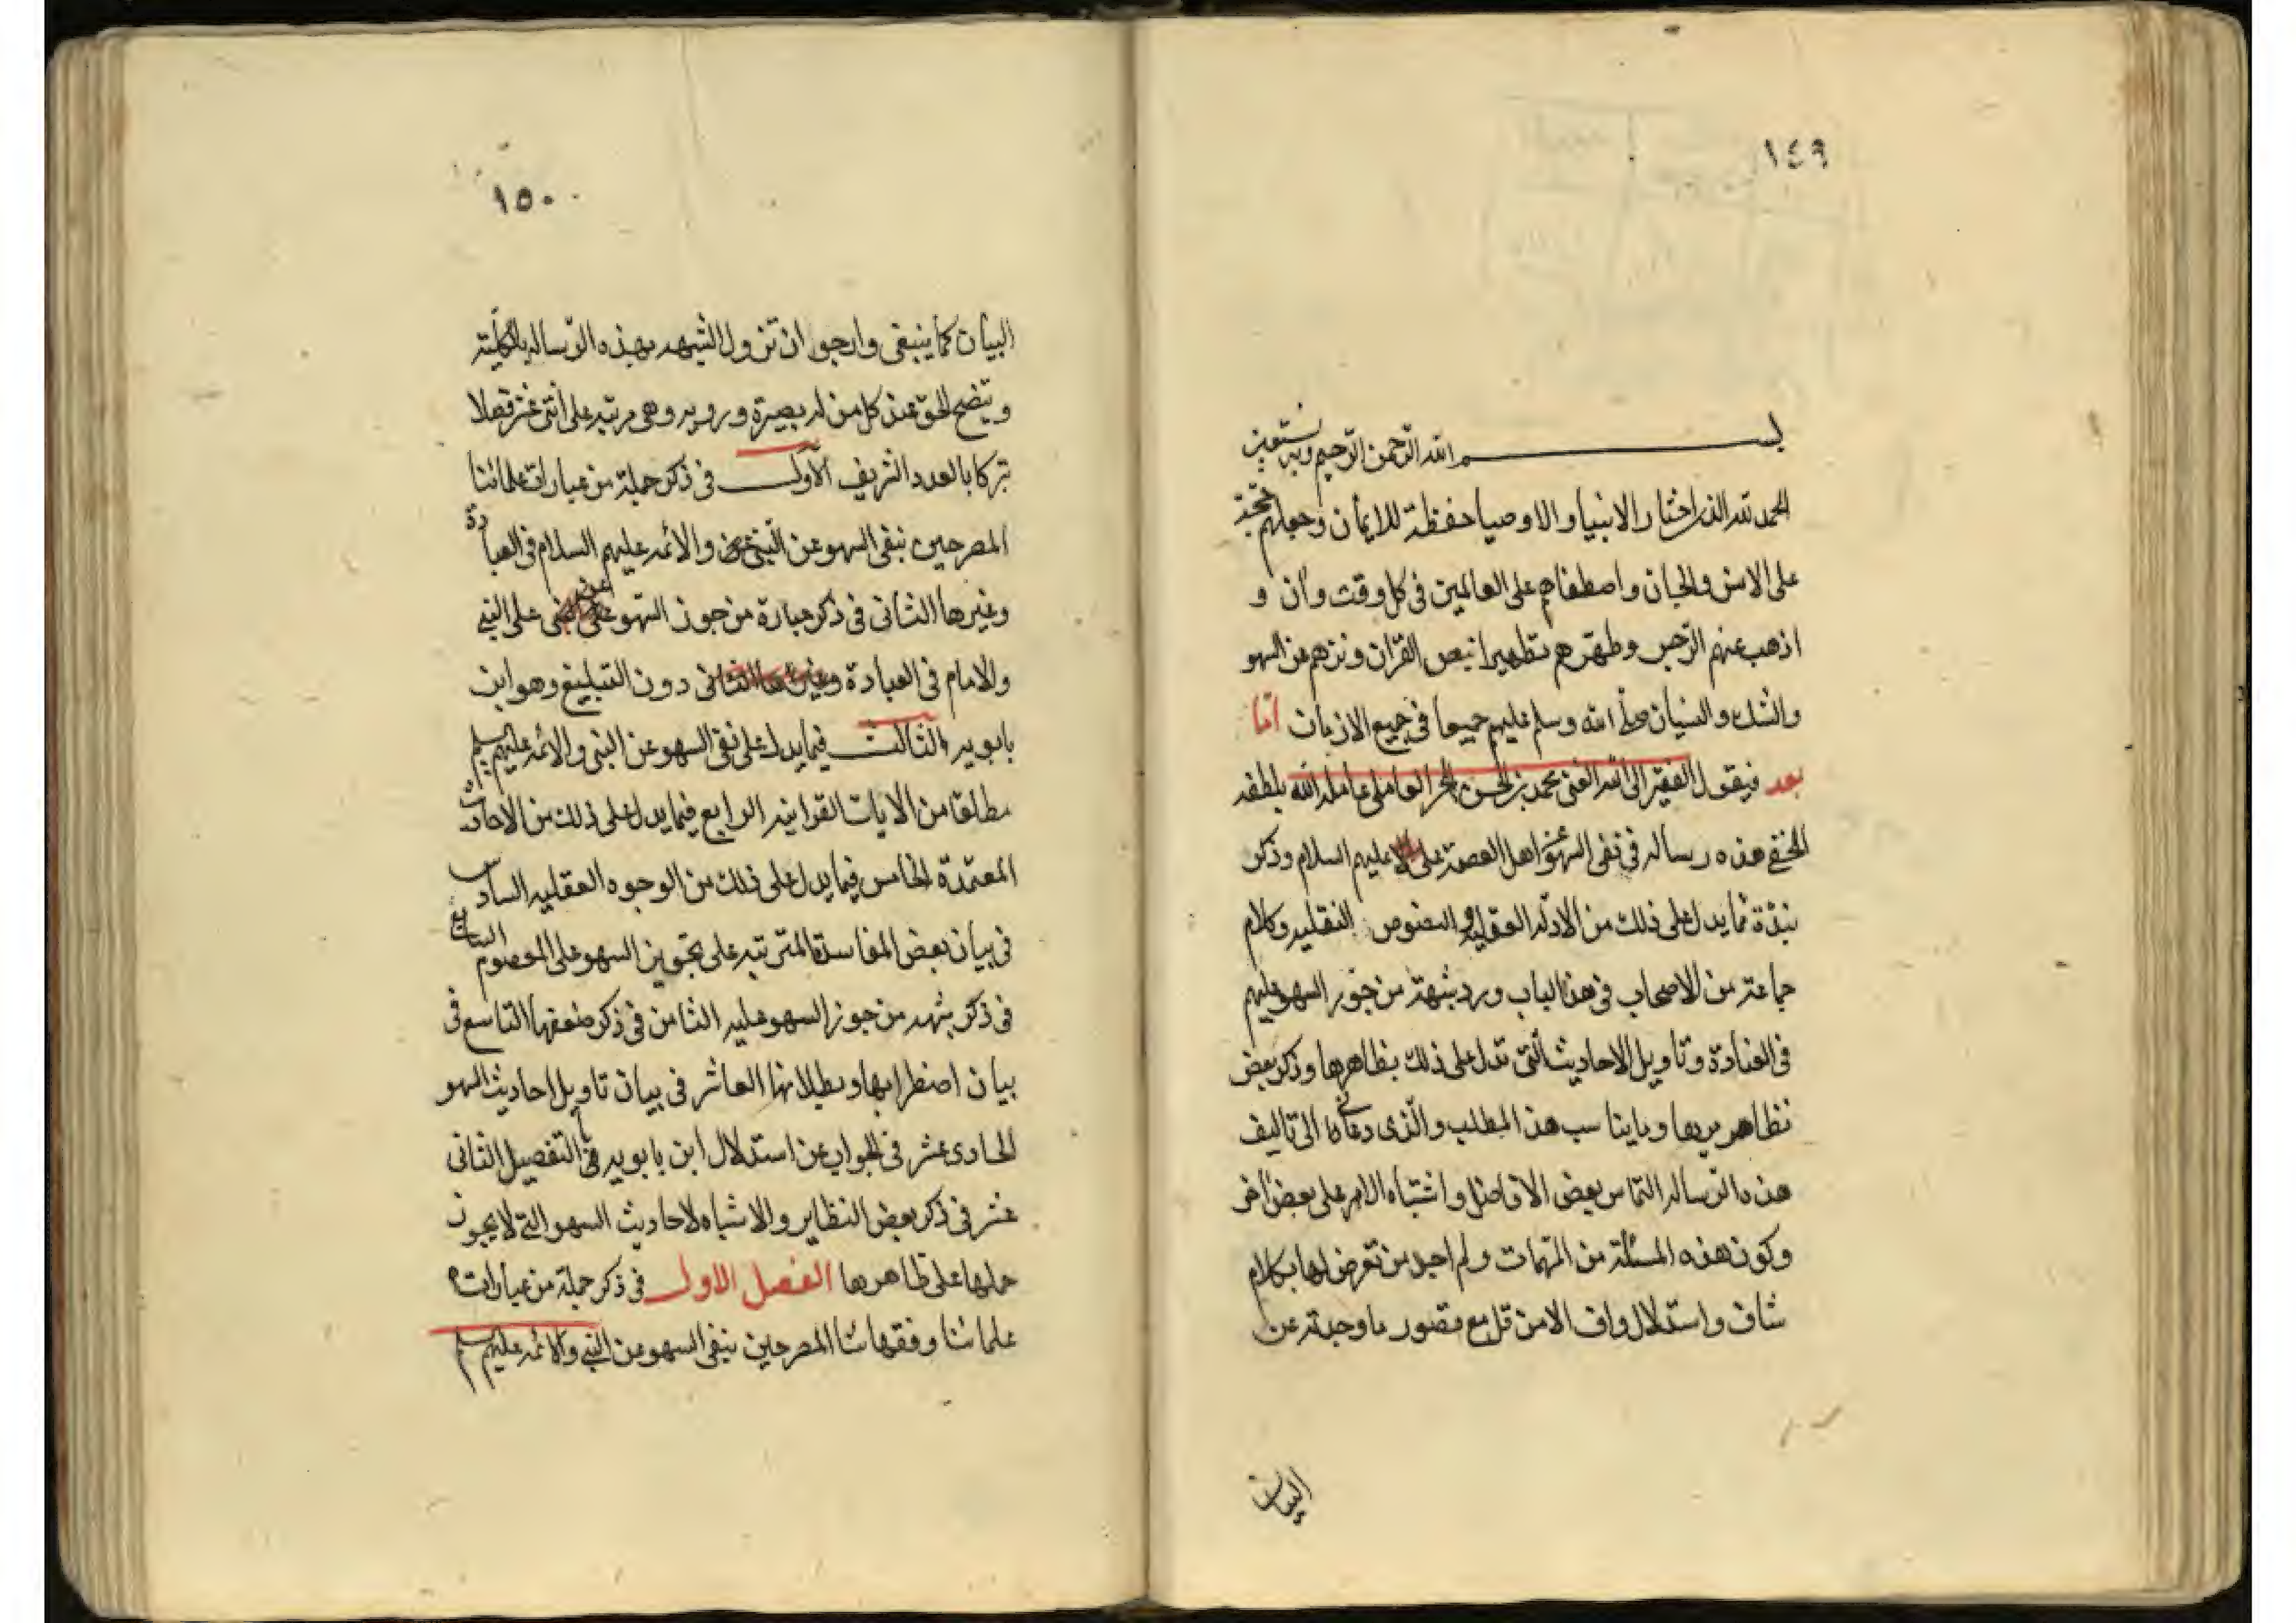 ١٤٩
بسم الله الرحمن الرحيم وبه نستعين
الحمد لله الذي اختار الانبيا والاوصيا حفظة للايمان وجعلهم حجته
على الانس والجان واصطفاهم على العالمين في كل وقت وآن و
اذهب عنهم الرجس وطهرهم تطهيرا بنص القرآن ونزههم عن السهو
والشك والنسيان صلى الله وسلم عليهم جميعا في جميع الازمان امّا
بعد فيقول الفقير الى الله الغني محمد بن الحسن الحر العاملي عامله الله بلطفه
الخفي هذه رساله في نفي السهو اهل العصمة عليهم السلام وذكر
نبذة مما يدل على ذلك من الادله العقليه والنصوص النقليه وكلام
جماعة من الاصحاب في هذا الباب ورد شبهة من جوز السهو عليهم
في العبادة وتاويل الاحاديث التي تدل على ذلك بظاهرها وذكر بعض
نظاهريرها وما يناسب هذا المطلب والذي دعاني الى تاليف
هذه الرساله التماس بعض الافاضل واشتباه الامر على بعض آخر
وكون هذه المسئلة من المهمات ولم اجد من تعرض لها بكلام
شاف واستدلال واف الا من قل مع قصور ما وجدته عن
البيان
١٥٠
البيان كما ينبغي وارجو ان تزول الشبهه بهذه الرساله بالكلية
ويتضح الحق عند كل من له بصيرة ورويه وهي مرتبه على اثنى عشر فصلا
تبركا بالعدد الشريف الاول في ذكر جملة من عبارات علمائنا
المصرحين بنفي السهو عن النبي والائمه عليهم السلام في العبادة
وغيرها الثاني في ذكر عبارة من جوز السهو على النبي
والامام في العبادة دون التبليغ وهو ابن
بابويه الثالث فيما يدل على نفي السهو عن النبي والائمه عليهم السلم
مطلقا من الايات القرانيه الرابع فيما يدل على ذلك من الاحاديث
المعتمدة الخامس فيما يدل على ذلك من الوجوه العقليه السادس
في بيان بعض المفاسد المترتبه على تجويز السهو على المعصوم السابع
في ذكر شبه من جوز السهو عليه الثامن في ذكر ضعفها التاسع في
بيان اضطرابها وبطلانها العاشر في بيان تاويل احاديث السهو
الحادي عشر في الجواب عن استدلال ابن بابويه في التفصيل الثاني
عشر في ذكر بعض النظاير والاشباه لاحاديث السهو التي لا يجوز
حملها على ظاهرها الفصل الاول في ذكر جملة من عبارات
علمائنا وفقهائنا المصرحين بنفي السهو عن النبي والائمه عليهم السلم